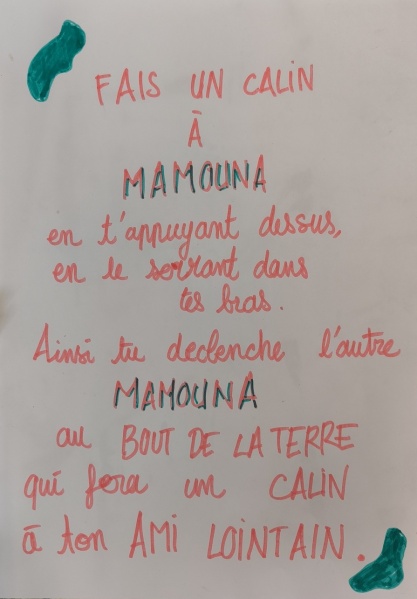 FAIS UN CALIN
À
MAMOUNA
en t'appuyant dessus,
en le serrant dans
tes bras.
Ainsi tu declenche l'autre
MAMOUNA
au BOUT DE LA TERRE
qui fera un CALIN
à ton AMI LOINTAIN.